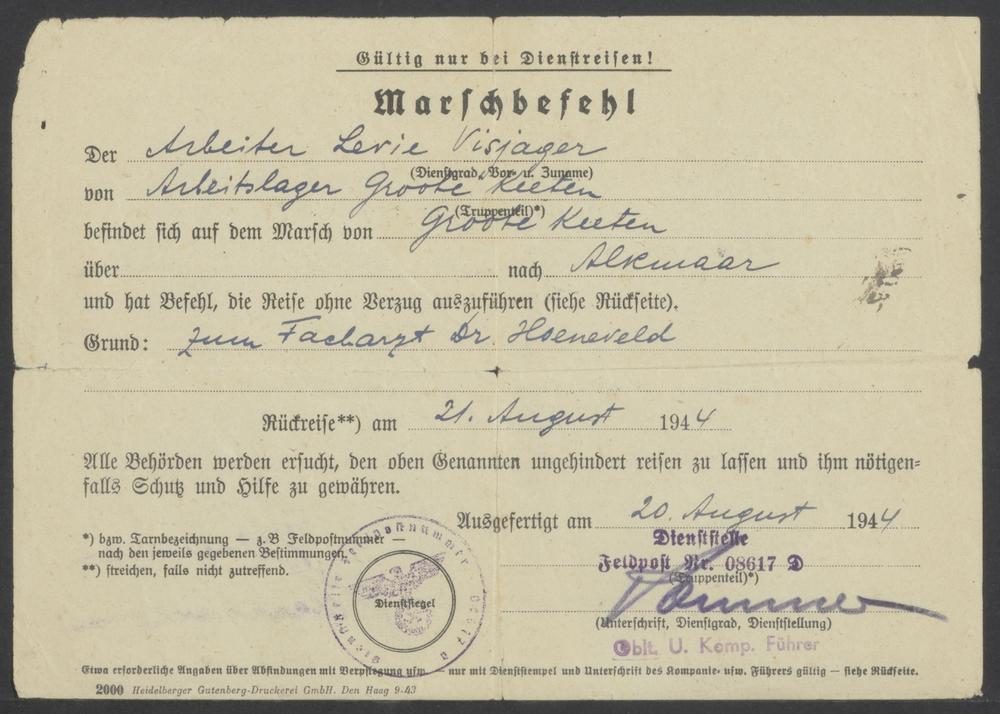 Gültig nur bei Dienstreisen!
Marschbefehl
Der Arbeiter Levie Visjager
(Dienstgrad, Vor- u. Zuname)
von Arbeitslager Groote Keeten
(Truppenteil)*)
befindet sich auf dem Marsch von Groote Keeten
über nach Alkmaar
und hat Befehl, die Reise ohne Verzug auszuführen (siehe Rückseite).
Grund: zum Facharzt Dr. Hoeneveld
Rückreise**) am 21. August 1944
Alle Behörden werden ersucht, den oben Genannten ungehindert reisen zu lassen und ihm nötigen-
falls Schutz und Hilfe zu gewähren.
Ausgefertigt am 20. August 1944
*) bzw. Tarnbezeichnung — z.B Feldpostnummer —
nach den jeweils gegebenen Bestimmungen.
**) streichen, falls nicht zutreffend.
Dienststelle Feldpostnummer 08617 D
Dienstsiegel
Dienststelle
Feldpost Nr. 08617 D
(Truppenteil)*)
(Unterschrift, Dienstgrad, Dienststellung)
Oblt. U. Komp. Führer
Etwa erforderliche Angaben über Abfindungen mit Verpflegung usw. — nur mit Dienststempel und Unterschrift des Kompanie- usw. Führers gültig — siehe Rückseite.
2000 Heidelberger Gutenberg-Druckerei GmbH. Den Haag 9-43